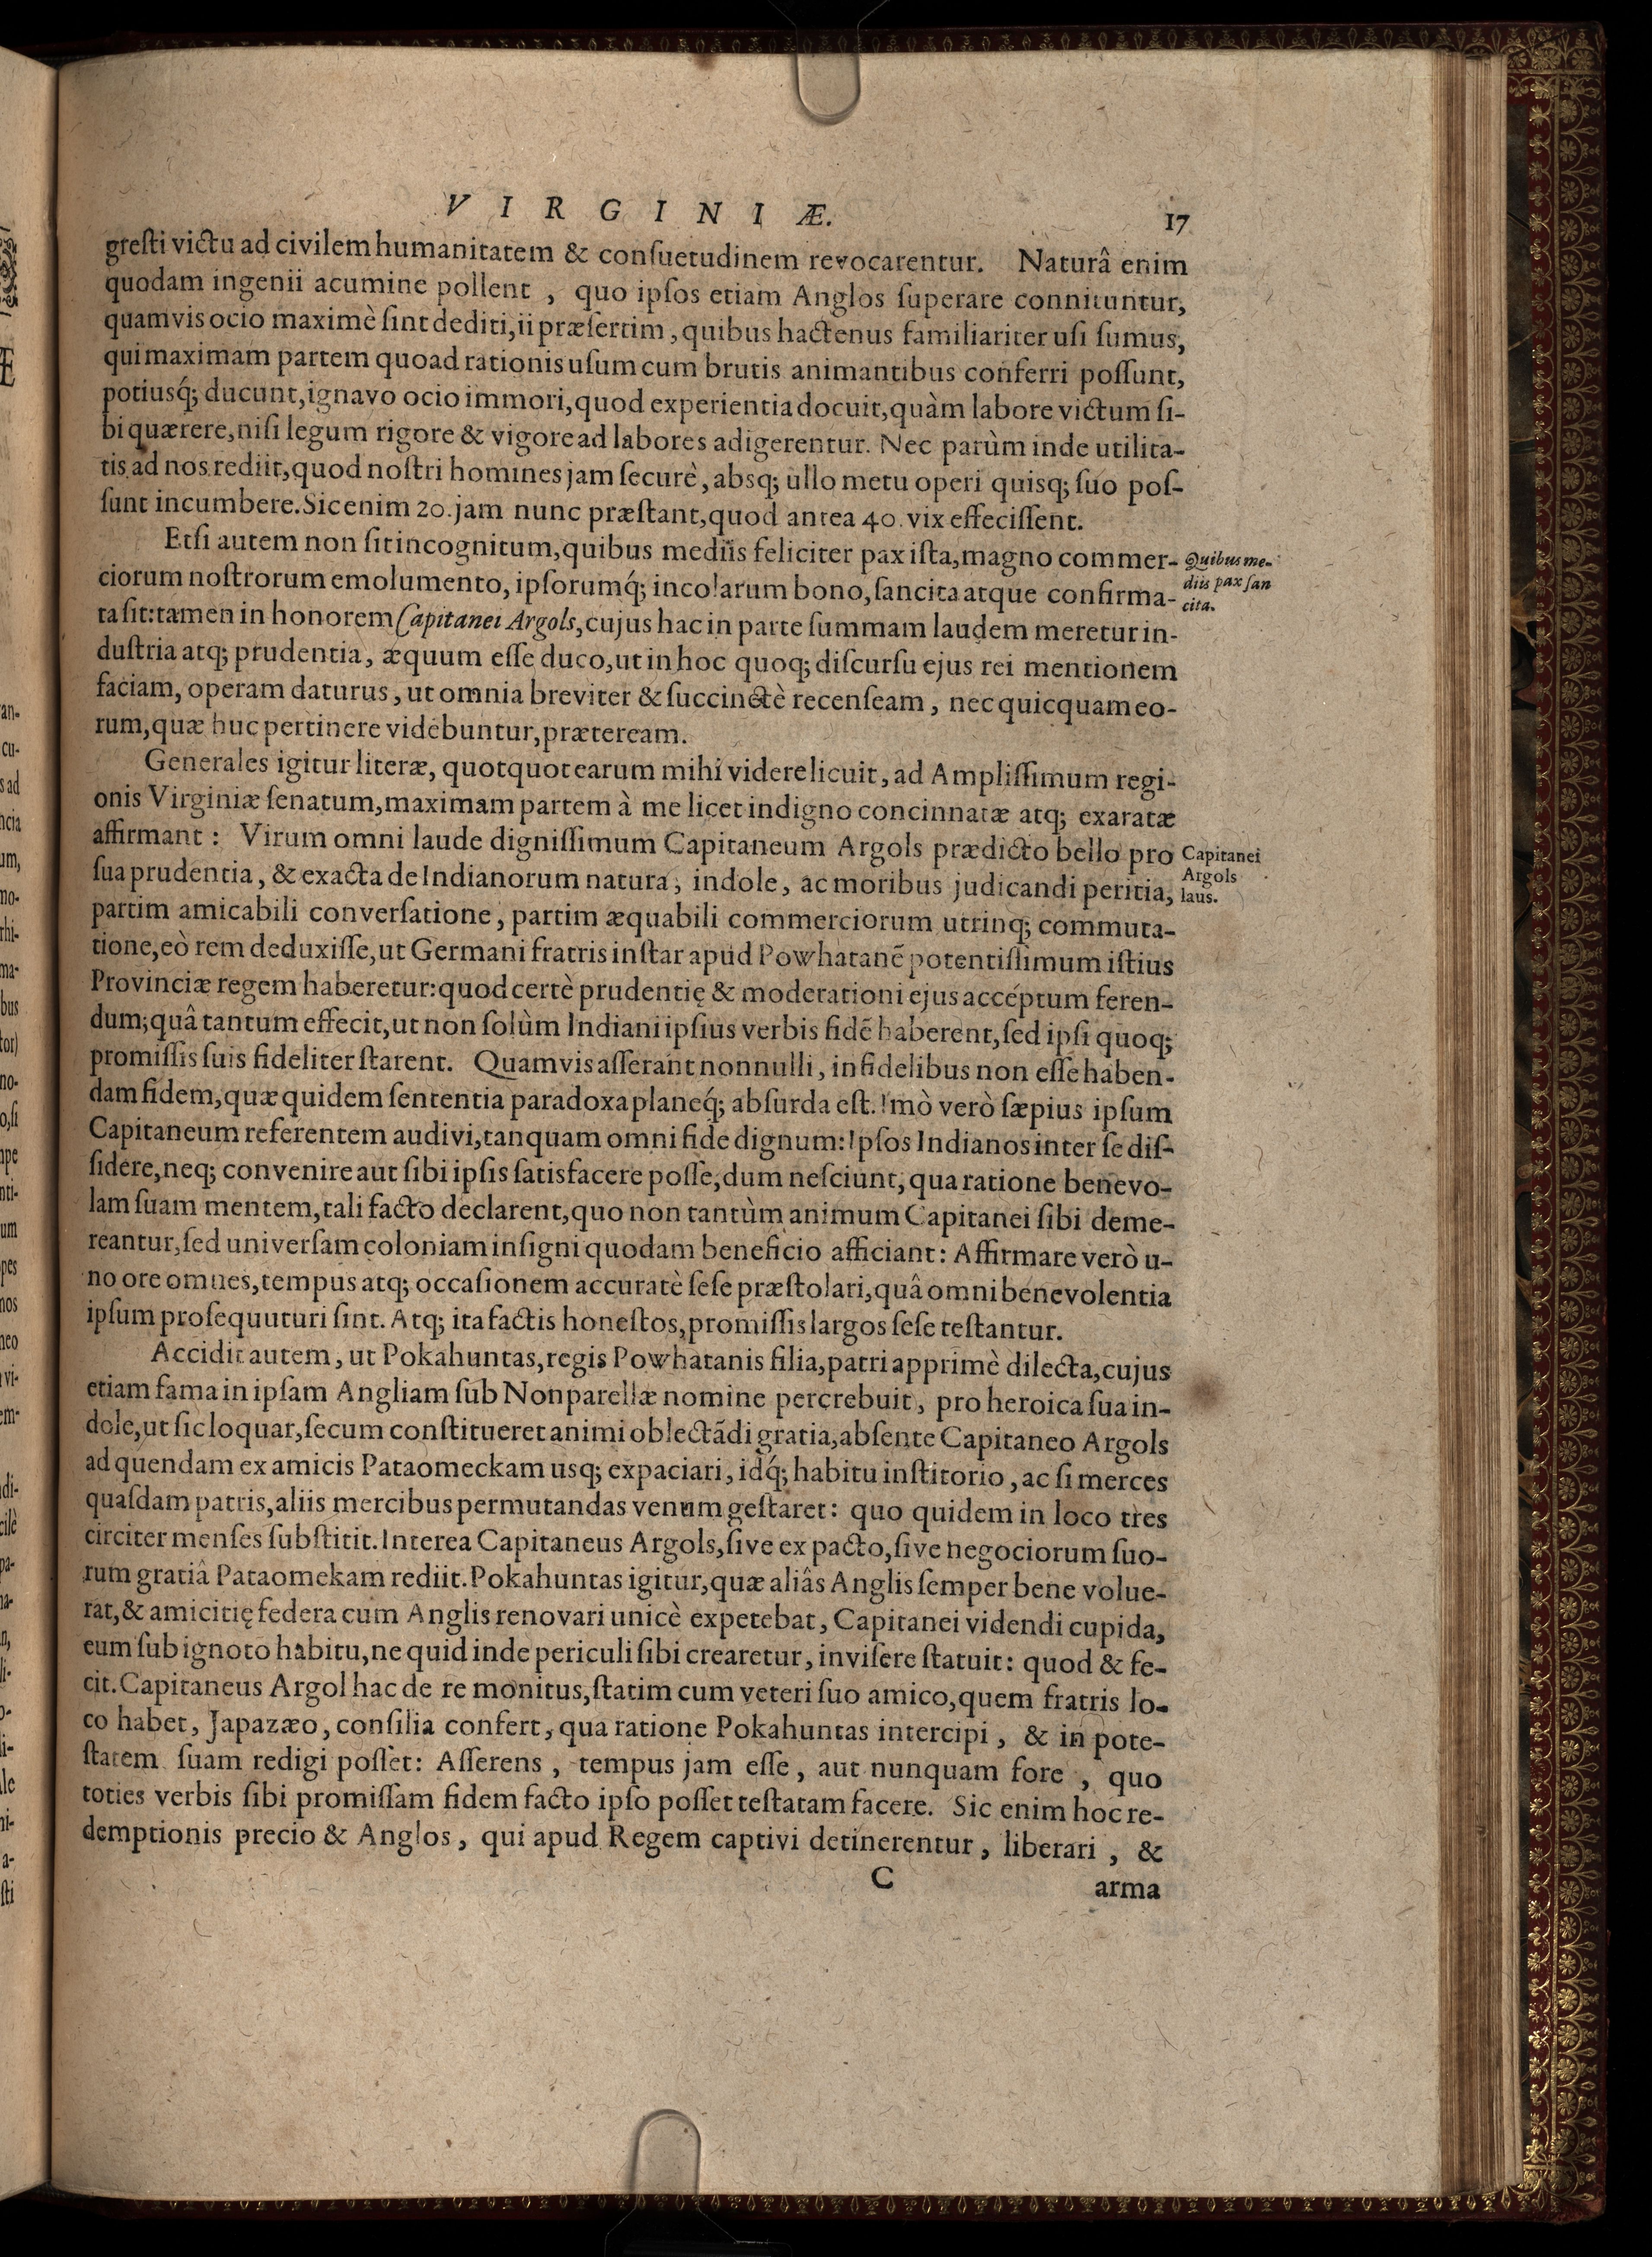 VIRGINIÆ. 17
greſti victu ad civilem humanitatem & conſuetudinem revocarentur. Naturâ enim
quodam ingenii acumine pollent , quo ipſos etiam Anglos ſuperare connituntur,
quamvis ocio maximè ſint dediti, ii præſertim, quibus hactenus familiariter uſi ſumus,
qui maximam partem quoad rationis uſum cum brutis animantibus conferri poſſunt,
potiusq́; ducunt, ignavo ocio immori, quod experientia docuit, quàm labore victum ſi-
bi quærere, niſi legum rigore & vigore ad labores adigerentur. Nec parùm inde utilita-
tis ad nos rediit, quod noſtri homines jam ſecurè, absq; ullo metu operi quisq; ſuo poſ-
ſunt incumbere. Sic enim 20. jam nunc præſtant, quod antea 40. vix effeciſſent.
Etſi autem non ſit incognitum, quibus mediis feliciter pax iſta, magno commer-
Quibus me-
diis pax ſan
cita.
ciorum noſtrorum emolumento, ipſorumq́; incolarum bono, ſancita atque confirma-
ta ſit: tamen in honorem Capitanei Argols, cujus hac in parte ſummam laudem meretur in-
duſtria atq; prudentia, æquum eſſe duco, ut in hoc quoq; diſcurſu ejus rei mentionem
faciam, operam daturus, ut omnia breviter & ſuccinctè recenſeam, nec quicquam eo-
rum, quæ huc pertinere videbuntur, præteream.
Generales igitur literæ, quotquot earum mihi videre licuit, ad Ampliſſimum regi-
onis Virginiæ ſenatum, maximam partem à me licet indigno concinnatæ atq; exaratæ
affirmant: Virum omni laude digniſſimum Capitaneum Argols prædicto bello pro
Capitanei
Argols
laus.
ſua prudentia, & exacta de Indianorum natura, indole, ac moribus judicandi peritia,
partim amicabili converſatione, partim æquabili commerciorum utrinq; commuta-
tione, eò rem deduxiſſe, ut Germani fratris inſtar apud Powhatanẽ potentiſſimum iſtius
Provinciæ regem haberetur: quod certè prudentię & moderationi ejus acceptum feren-
dum; quâ tantum effecit, ut non ſolùm Indiani ipſius verbis fidẽ haberent, ſed ipſi quoq;
promiſſis ſuis fideliter ſtarent. Quamvis aſſerant nonnulli, infidelibus non eſſe haben-
dam fidem, quæ quidem ſententia paradoxa planeq́; abſurda eſt. Imò verò ſæpius ipſum
Capitaneum referentem audivi, tanquam omni fide dignum: Ipſos Indianos inter ſe diſ-
ſidere, neq; convenire aut ſibi ipſis ſatisfacere poſſe, dum neſciunt, qua ratione benevo-
lam ſuam mentem, tali facto declarent, quo non tantùm animum Capitanei ſibi deme-
reantur, ſed univerſam coloniam inſigni quodam beneficio afficiant: Affirmare verò u-
no ore omnes, tempus atq; occaſionem accuratè ſeſe præſtolari, quâ omni benevolentia
ipſum proſequuturi ſint. Atq; ita factis honeſtos, promiſſis largos ſeſe teſtantur.
Accidit autem, ut Pokahuntas, regis Powhatanis filia, patri apprimè dilecta, cujus
etiam fama in ipſam Angliam ſub Nonparellæ nomine percrebuit, pro heroica ſua in-
dole, ut ſic loquar, ſecum conſtitueret animi oblectãdi gratia, abſente Capitaneo Argols
ad quendam ex amicis Pataomeckam usq; expaciari, idq́; habitu inſtitorio, ac ſi merces
quaſdam patris, aliis mercibus permutandas venum geſtaret: quo quidem in loco tres
circiter menſes ſubſtitit. Interea Capitaneus Argols, ſive ex pacto, ſive negociorum ſuo-
rum gratiâ Pataomekam rediit. Pokahuntas igitur, quæ aliâs Anglis ſemper bene volue-
rat, & amicitię federa cum Anglis renovari unicè expetebat, Capitanei videndi cupida,
eum ſub ignoto habitu, ne quid inde periculi ſibi crearetur, inviſere ſtatuit: quod & fe-
cit. Capitaneus Argol hac de re monitus, ſtatim cum veteri ſuo amico, quem fratris lo-
co habet, Japazæo, conſilia confert, qua ratione Pokahuntas intercipi, & in pote-
ſtatem ſuam redigi poſſet: Aſſerens , tempus jam eſſe, aut nunquam fore , quo
toties verbis ſibi promiſſam fidem facto ipſo poſſet teſtatam facere. Sic enim hoc re-
demptionis precio & Anglos, qui apud Regem captivi detinerentur, liberari , &
C arma